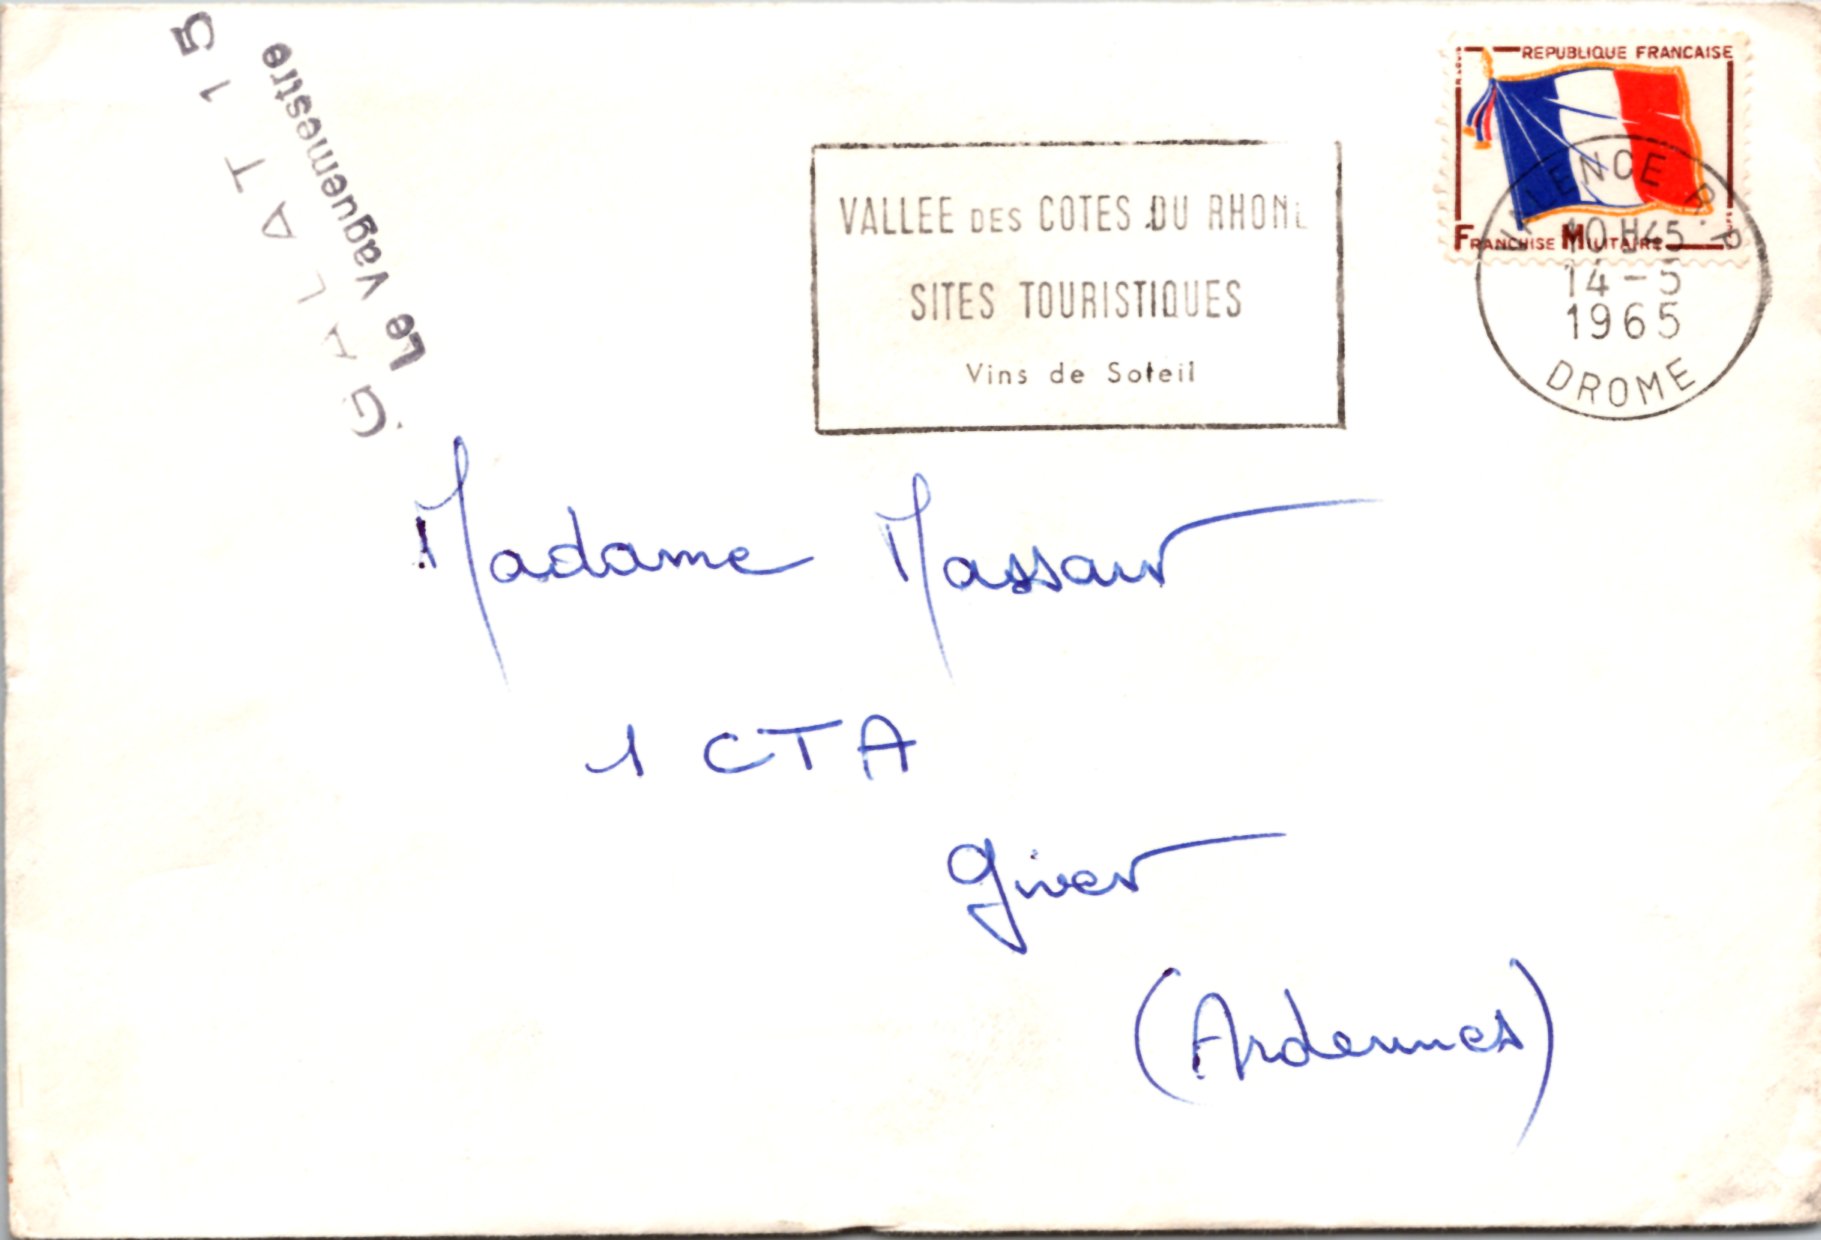 GALAT 15
Le Vaguemestre
REPUBLIQUE FRANCAISE
FRANCHISE MILITAIRE
VALENCE R.P
10H45
14-5
1965
DROME
VALLEE DES COTES DU RHONE
SITES TOURISTIQUES
Vins de Soleil
Madame
1 CTA
Givet
(Ardennes)